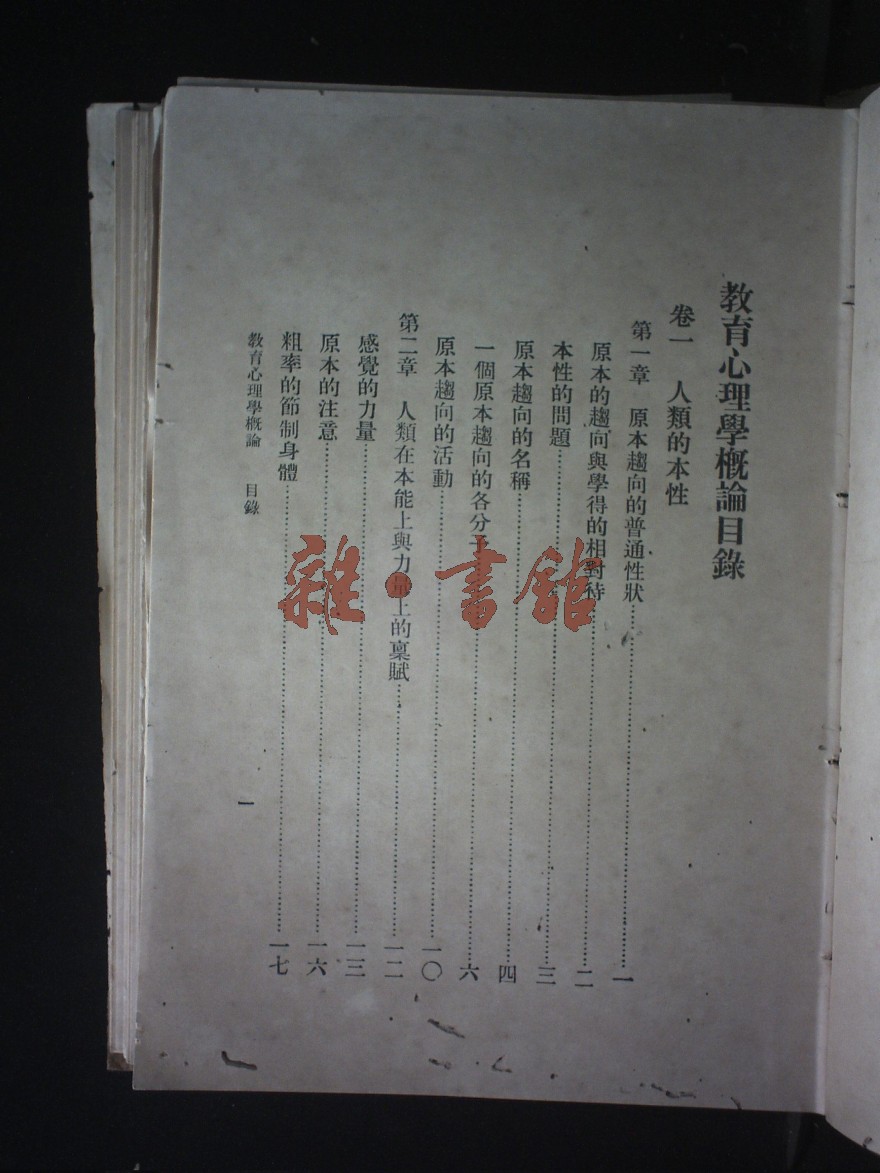 教育心理學概論目錄
卷一　人類的本性
第一章　原本趨向的普通性狀……一
原本的趨向與學得的相對待……二
本性的問題……三
原本趨向的名稱……四
一個原本趨向的各分子……六
原本趨向的活動……一〇
第二章　人類在本能上與力量上的稟賦……一二
感覺的力量……一三
原本的注意……一六
粗率的節制身體……一七
教育心理學概論　目錄　一
雜·書館